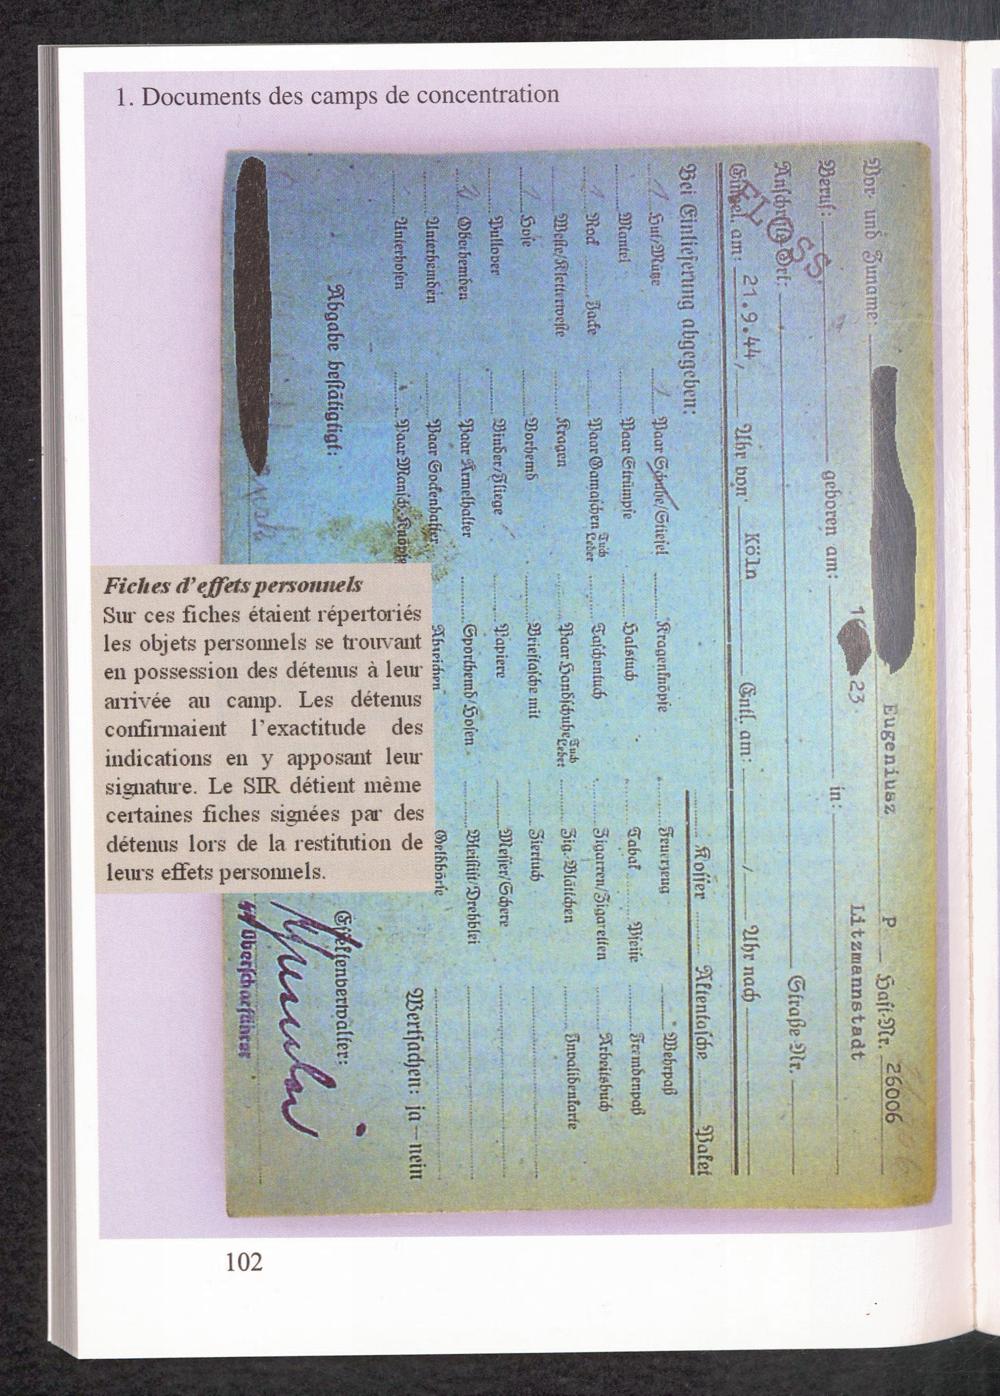 1. Documents des camps de concentration
Vor- und Zuname: Eugeniusz P Haft-Nr. 26006
Beruf: geboren am: 23. in: Litzmannstadt
Anschrift: Ort: Straße Nr.
FLOSS.
Eingel. am: 21.9.44, Uhr von Köln Entl. am: / Uhr nach
Bei Einlieferung abgegeben: Koffer Aktentasche Paket
1 Hut/Mütze 1 Paar Schuhe/Stiefel Kragenknöpfe Feuerzeug Wehrpaß
Mantel Paar Strümpfe Halstuch Tabak Pfeife Fremdenpaß
1 Rock Jacke Paar Gamaschen Tuch Leder Taschentuch Zigarren/Zigaretten Arbeitsbuch
Weste/Kletterweste Kragen Paar Handschuhe Tuch Leder Zig.-Blättchen Invalidenkarte
1 Hose Vorhemd Brieftasche mit Ziertuch
Pullover Binder/Fliege Papiere Messer/Schere
2 Oberhemden Paar Ärmelhalter Sporthemd/Hosen Bleistift/Drehblei
Unterhemden Paar Sockenhalter Abzeichen Geldbörse
Unterhosen Paar Mansch.-Knöpfe Wertsachen: ja – nein
Abgabe bestätigt: Effektenverwalter:
Oberscharführer
Fiches d'effets personnels
Sur ces fiches étaient répertoriés
les objets personnels se trouvant
en possession des détenus à leur
arrivée au camp. Les détenus
confirmaient l'exactitude des
indications en y apposant leur
signature. Le SIR détient même
certaines fiches signées par des
détenus lors de la restitution de
leurs effets personnels.
102